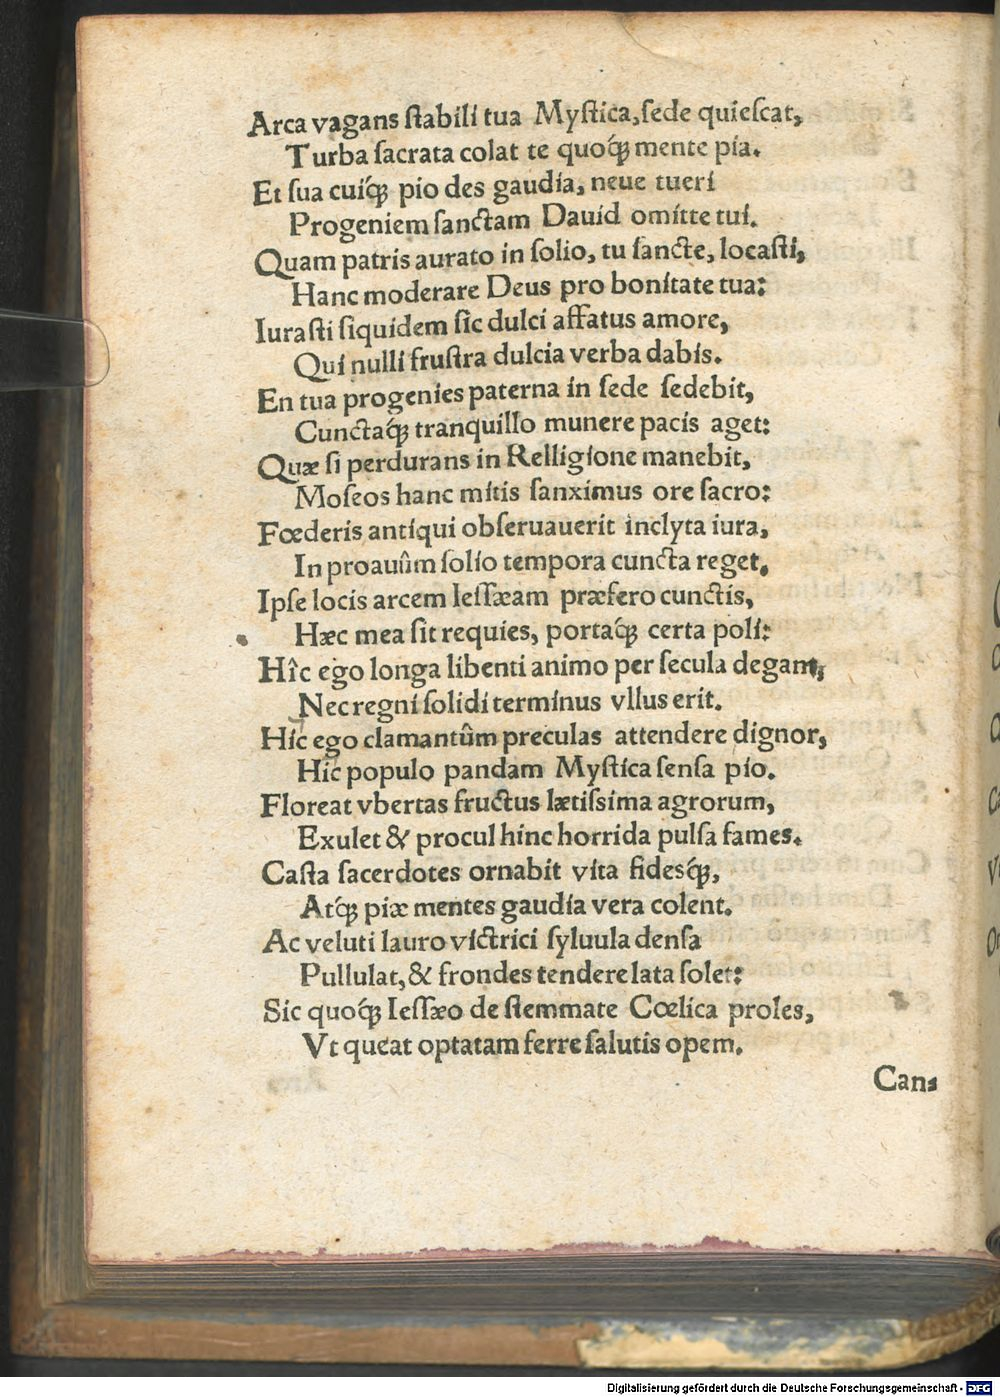 Arca vagans ſtabili tua Myſtica, ſede quieſcat,
Turba ſacrata colat te quoq́ꝫ mente pia.
Et ſua cuiq́ꝫ pio des gaudia, neue tueri
Progeniem ſanctam Dauid omitte tui.
Quam patris aurato in ſolio, tu ſancte, locaſti,
Hanc moderare Deus pro bonitate tua:
Iuraſti ſiquidem ſic dulci affatus amore,
Qui nulli fruſtra dulcia verba dabis.
En tua progenies paterna in ſede ſedebit,
Cunctaq́ꝫ tranquillo munere pacis aget:
Quæ ſi perdurans in Relligione manebit,
Moſeos hanc mitis ſanximus ore ſacro:
Fœderis antiqui obſeruauerit inclyta iura,
In proauûm ſolio tempora cuncta reget.
Ipſe locis arcem Ieſſæam præfero cunctis,
Hæc mea ſit requies, portaq́ꝫ certa poli:
Hîc ego longa libenti animo per ſecula degam,
Nec regni ſolidi terminus vllus erit.
Hic ego clamantûm preculas attendere dignor,
Hic populo pandam Myſtica ſenſa pio.
Floreat vbertas fructus lætiſsima agrorum,
Exulet & procul hinc horrida pulſa fames.
Caſta ſacerdotes ornabit vita fidesq́ꝫ,
Atq́ꝫ piæ mentes gaudia vera colent.
Ac veluti lauro victrici ſyluula denſa
Pullulat, & frondes tendere lata ſolet:
Sic quoq́ꝫ Ieſſæo de ſtemmate Cœlica proles,
Vt queat optatam ferre ſalutis opem.
Can⸗
Digitalisierung gefördert durch die Deutsche Forschungsgemeinschaft - DFG